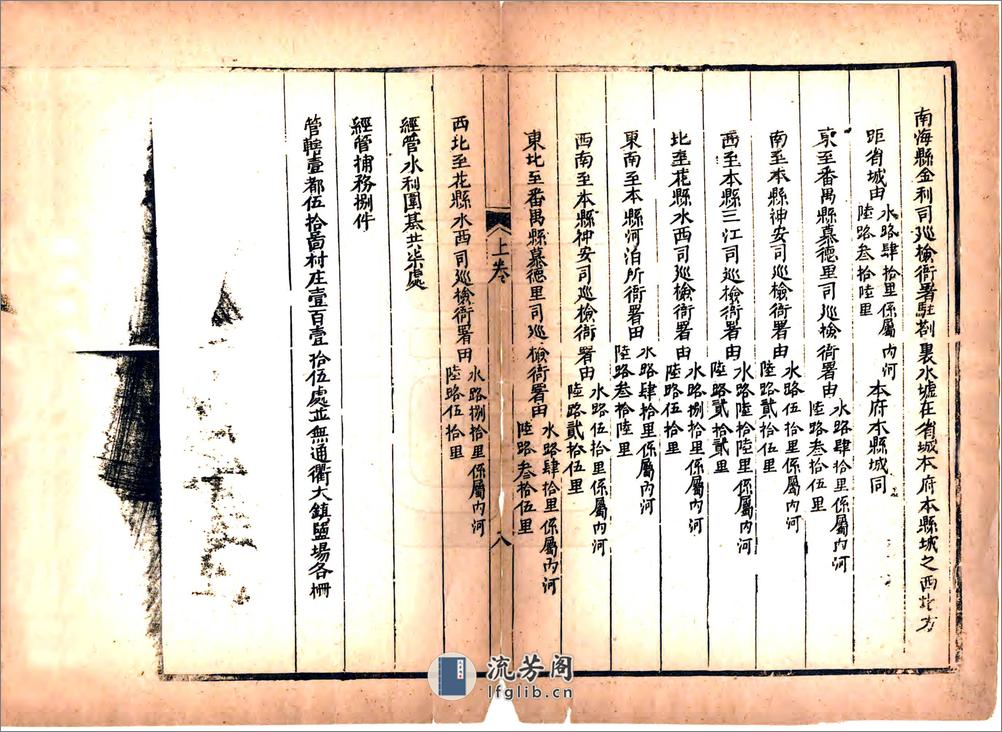 南海縣金利司巡檢衙署駐劄裏水墟在省城本府本縣城之西北方
距省城由水路肆拾里係屬內河陸路叁拾陸里本府本縣城同
東至番禺縣慕德里司巡檢衙署由水路肆拾里係屬內河陸路叁拾伍里
南至本縣神安司巡檢衙署由水路伍拾里係屬內河陸路貳拾伍里
西至本縣三江司巡檢衙署由水路陸拾陸里係屬內河陸路貳拾貳里
北至花縣水西司巡檢衙署由水路捌拾里係屬內河陸路伍拾里
東南至本縣河泊所衙署由水路肆拾里係屬內河陸路叁拾陸里
西南至本縣神安司巡檢衙署由水路伍拾里係屬內河陸路貳拾伍里
東北至番禺縣慕德里司巡檢衙署由水路肆拾里係屬內河陸路叁拾伍里
上卷
八
西北至花縣水西司巡檢衙署由水路捌拾里係屬內河陸路伍拾里
經管水利圍基共柒處
經管捕務捌件
管轄壹都伍拾啚村庄壹百壹拾伍處並無通衢大鎮鹽場各柵
流芳阁
lfglib.cn